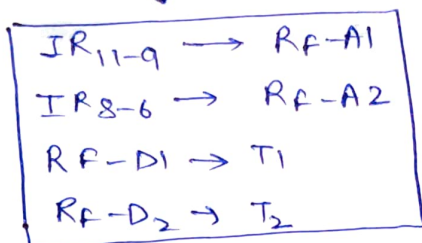 IR₁₁₋₉ → RF-A1
IR₈₋₆ → RF-A2
RF-D1 → T1
RF-D₂ → T₂